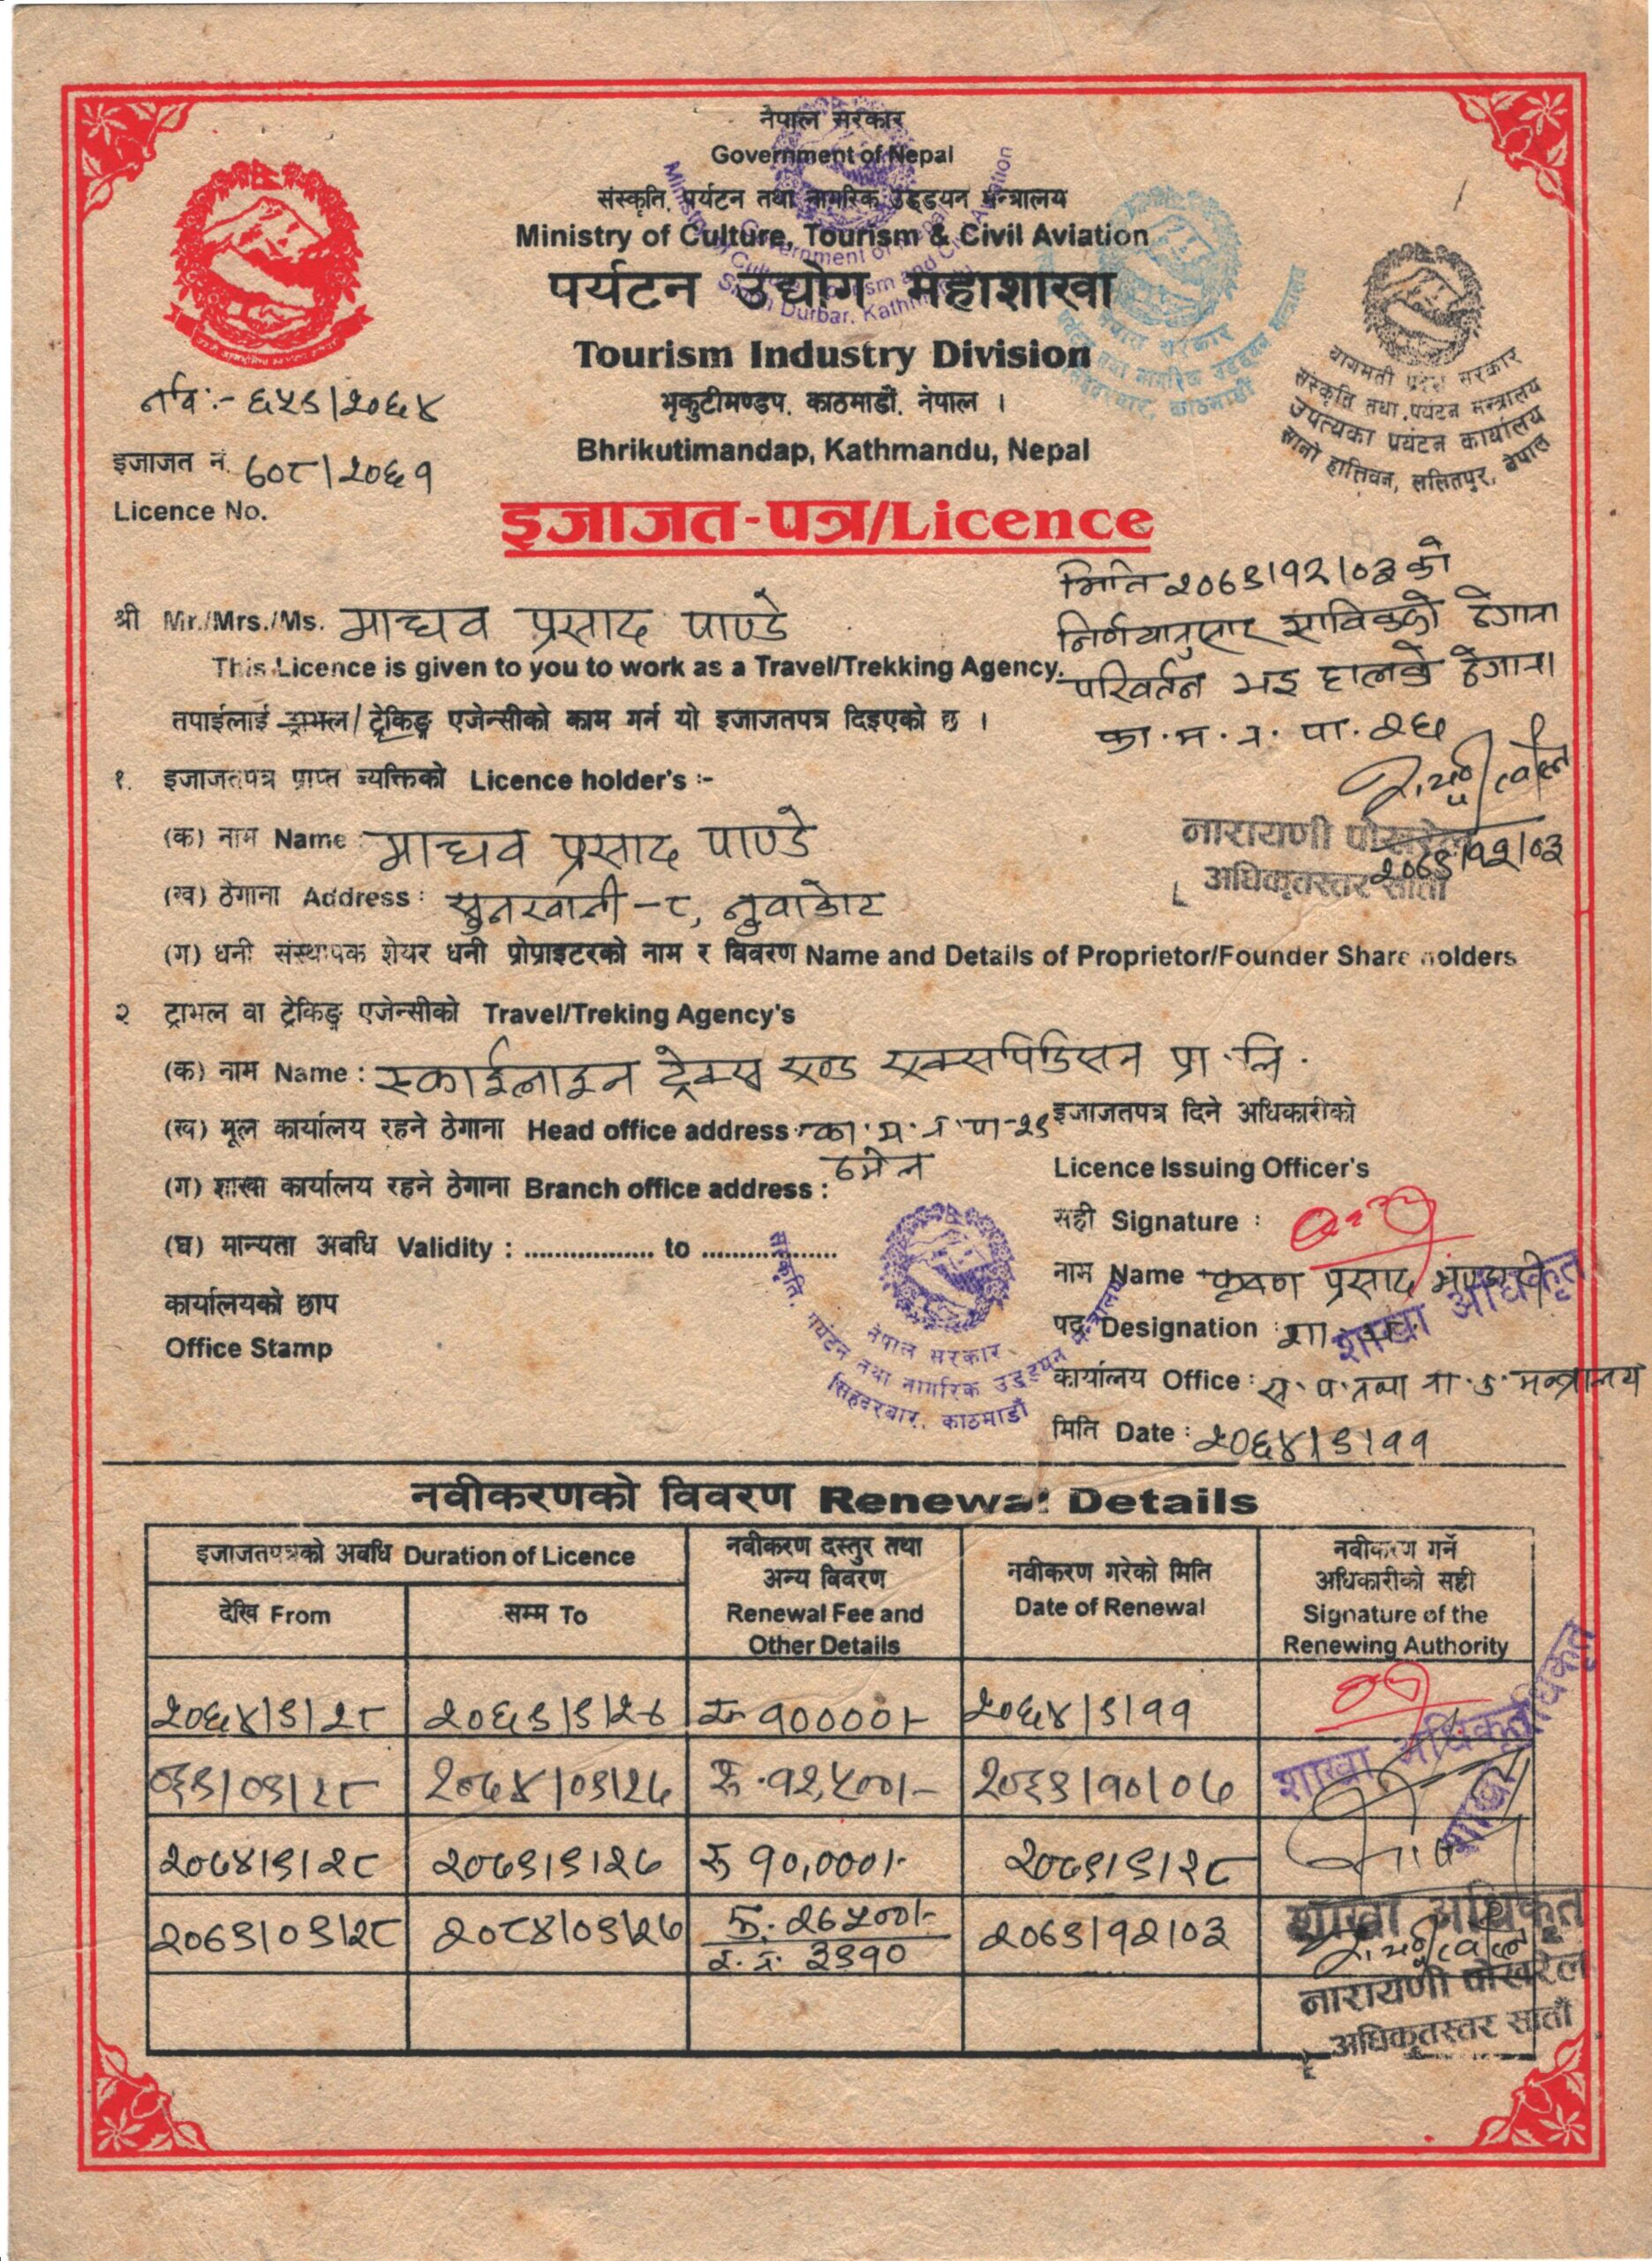 नेपाल सरकार
Government of Nepal
संस्कृति, पर्यटन तथा नागरिक उड्डयन मन्त्रालय
Ministry of Culture, Tourism & Civil Aviation
पर्यटन उद्योग महाशाखा
Tourism Industry Division
भृकुटीमण्डप, काठमाडौं, नेपाल ।
Bhrikutimandap, Kathmandu, Nepal
बागमती प्रदेश सरकार
संस्कृति तथा पर्यटन मन्त्रालय
उपत्यका पर्यटन कार्यालय
सानो हात्तिवन, ललितपुर, नेपाल
६५९/२०६४
इजाजत नं. ६०८/२०६१
Licence No.
इजाजत-पत्र/Licence
मिति २०७९/१२/०३ को
निर्णयानुसार साविकको ठेगाना
परिवर्तन भइ हालको ठेगाना
का.म.न.पा. २६
श्री Mr./Mrs./Ms. माधव प्रसाद पाण्डे
This Licence is given to you to work as a Travel/Trekking Agency.
तपाईलाई ट्राभल/ट्रेकिङ्ग एजेन्सीको काम गर्न यो इजाजतपत्र दिइएको छ ।
१. इजाजतपत्र प्राप्त व्यक्तिको Licence holder's :-
(क) नाम Name माधव प्रसाद पाण्डे
नारायणी पोखरेल
२०७९/१२/०३
अधिकृतस्तर सातौं
(ख) ठेगाना Address : सुनखानी-८, नुवाकोट
(ग) धनी संस्थापक शेयर धनी प्रोप्राइटरको नाम र विवरण Name and Details of Proprietor/Founder Share holders
२ ट्राभल वा ट्रेकिङ्ग एजेन्सीको Travel/Treking Agency's
(क) नाम Name : स्काईलाइन ट्रेक्स एण्ड एक्सपिडिसन प्रा.लि.
(ख) मूल कार्यालय रहने ठेगाना Head office address का.म.न.पा-२९
ठमेल
(ग) शाखा कार्यालय रहने ठेगाना Branch office address :
(घ) मान्यता अवधि Validity : .................. to ..................
कार्यालयको छाप
Office Stamp
नेपाल सरकार
संस्कृति, पर्यटन तथा नागरिक उड्डयन मन्त्रालय
सिंहदरबार, काठमाडौं
इजाजतपत्र दिने अधिकारीको
Licence Issuing Officer's
सही Signature :
नाम Name कृष्ण प्रसाद भण्डारी
शाखा अधिकृत
पद Designation :
कार्यालय Office : सं.प.तथा ना.उ. मन्त्रालय
मिति Date : २०६४/९/११
नवीकरणको विवरण Renewal Details
इजाजतपत्रको अवधि Duration of Licence
देखि From
सम्म To
नवीकरण दस्तुर तथा
अन्य विवरण
Renewal Fee and
Other Details
नवीकरण गरेको मिति
Date of Renewal
नवीकरण गर्ने
अधिकारीको सही
Signature of the
Renewing Authority
२०६४/९/२८ २०६९/९/२७ रु १००००/- २०६४/९/११
०६९/०९/२८ २०७४/०९/२७ रु.१२,५००/- २०६९/१०/०७
शाखा अधिकृत
२०७४/९/२८ २०७९/९/२७ रु १०,०००/- २०७९/९/२८
शाखा अधिकृत
२०७९/०९/२८ २०८४/०९/२७ रु. २६५००/- २०७९/१२/०३
र.नं. ३९१०
नारायणी पोखरेल
अधिकृतस्तर सातौं